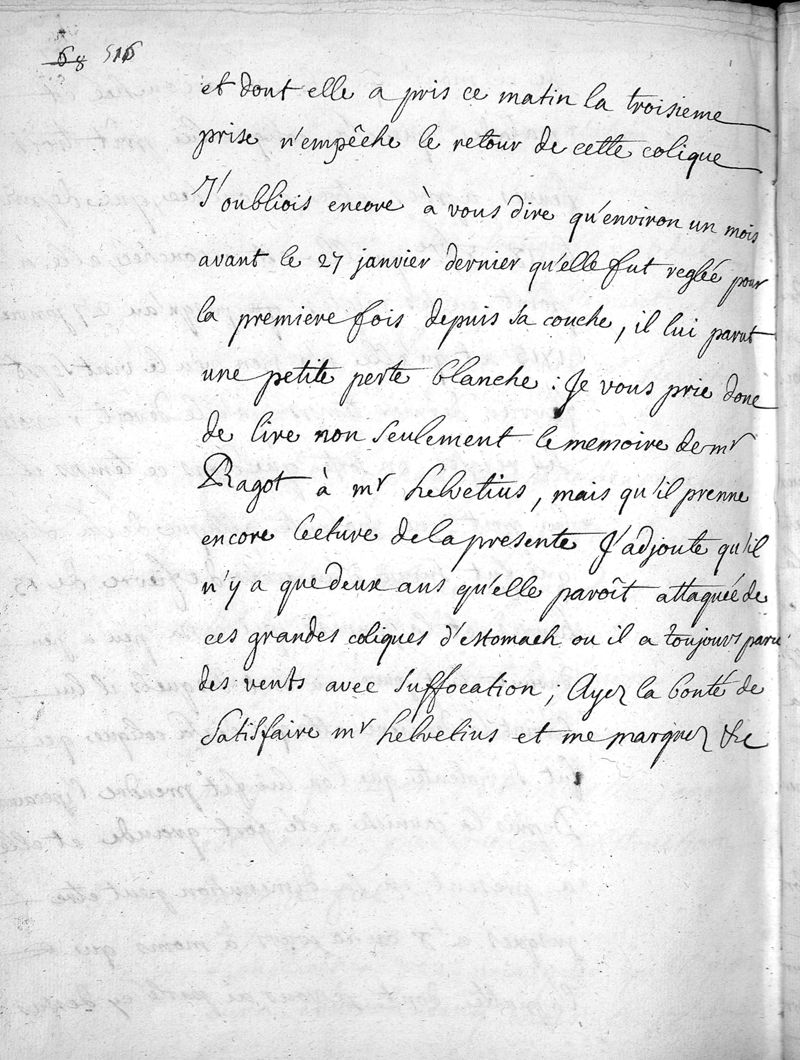 68 516
et dont elle a pris ce matin la troisieme
prise n'empêche le retour de cette colique
J'oubliois encore à vous dire qu'environ un mois
avant le 27 janvier dernier qu'elle fut reglée pour
la premiere fois depuis sa couche, il lui parut
une petite perte blanche. Je vous prie donc
de lire non seulement le memoire de mr
Ragot à mr helvetius, mais qu'il prenne
encore lecture de la presente J'adjoute qu'il
n'y a que deux ans qu'elle paroît attaquée de
ces grandes coliques d'estomach ou il a toujours paru
des vents avec suffocation; Ayez la bonté de
satisfaire mr helvetius et me marquez &c